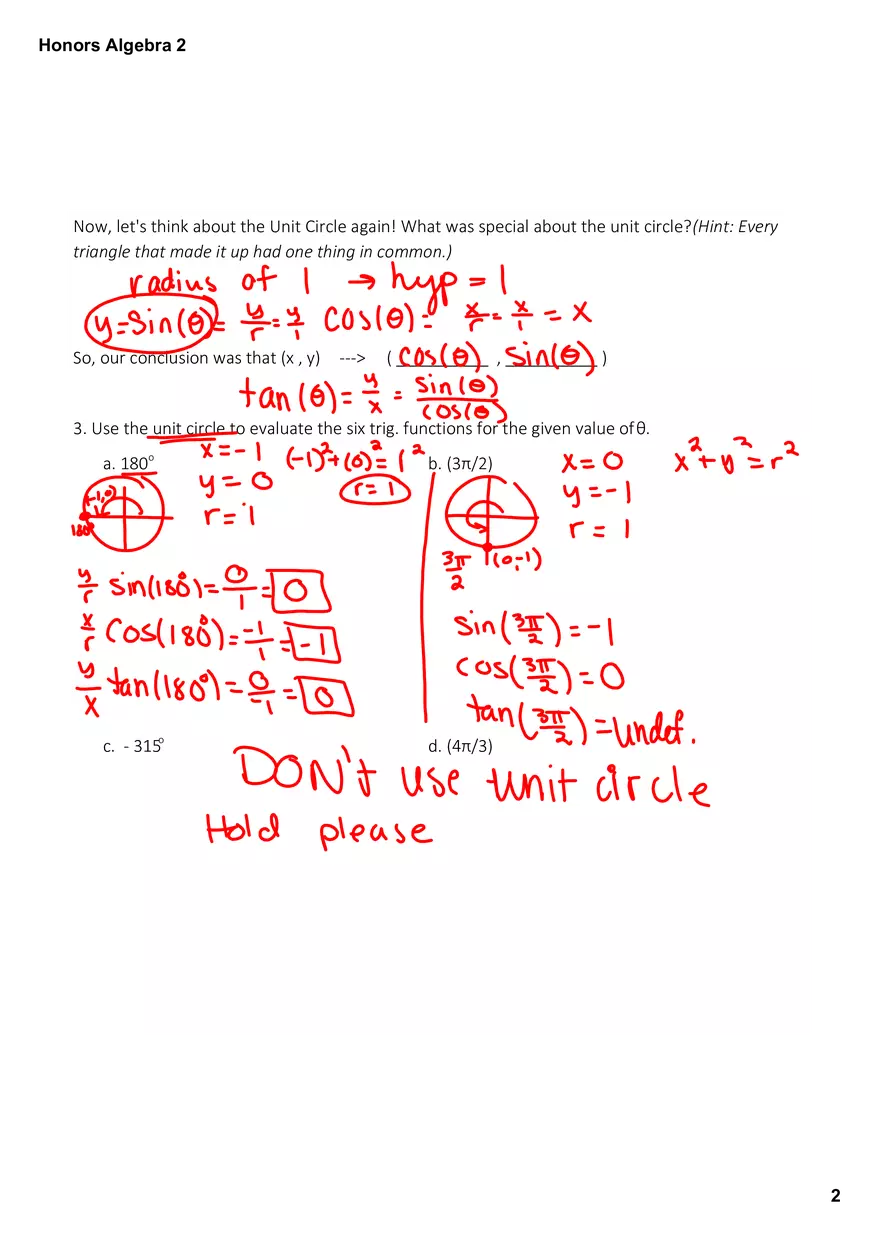 Honors Algebra 2
Now, let's think about the Unit Circle again! What was special about the unit circle?(Hint: Every
triangle that made it up had one thing in common.)
radius of 1 → hyp = 1
y=sin(θ)= y/r = y/1 cos(θ)= x/r = x/1 = x
So, our conclusion was that (x , y) ---> ( cos(θ) , sin(θ) )
tan(θ)= y/x = sin(θ)/cos(θ)
3. Use the unit circle to evaluate the six trig. functions for the given value of θ.
a. 180°
x=-1
(-1)²+(0)²=1²
y=0
r=1
r=1
(-1,0)
180°
y/r sin(180°)= 0/1 = 0
x/r cos(180°)= -1/1 = -1
y/x tan(180°)= 0/-1 = 0
b. (3π/2)
x=0
x²+y²=r²
y=-1
r=1
3π/2
(0,-1)
sin(3π/2)=-1
cos(3π/2)=0
tan(3π/2)=undef.
c. - 315°
d. (4π/3)
DON't use unit circle
Hold please
2